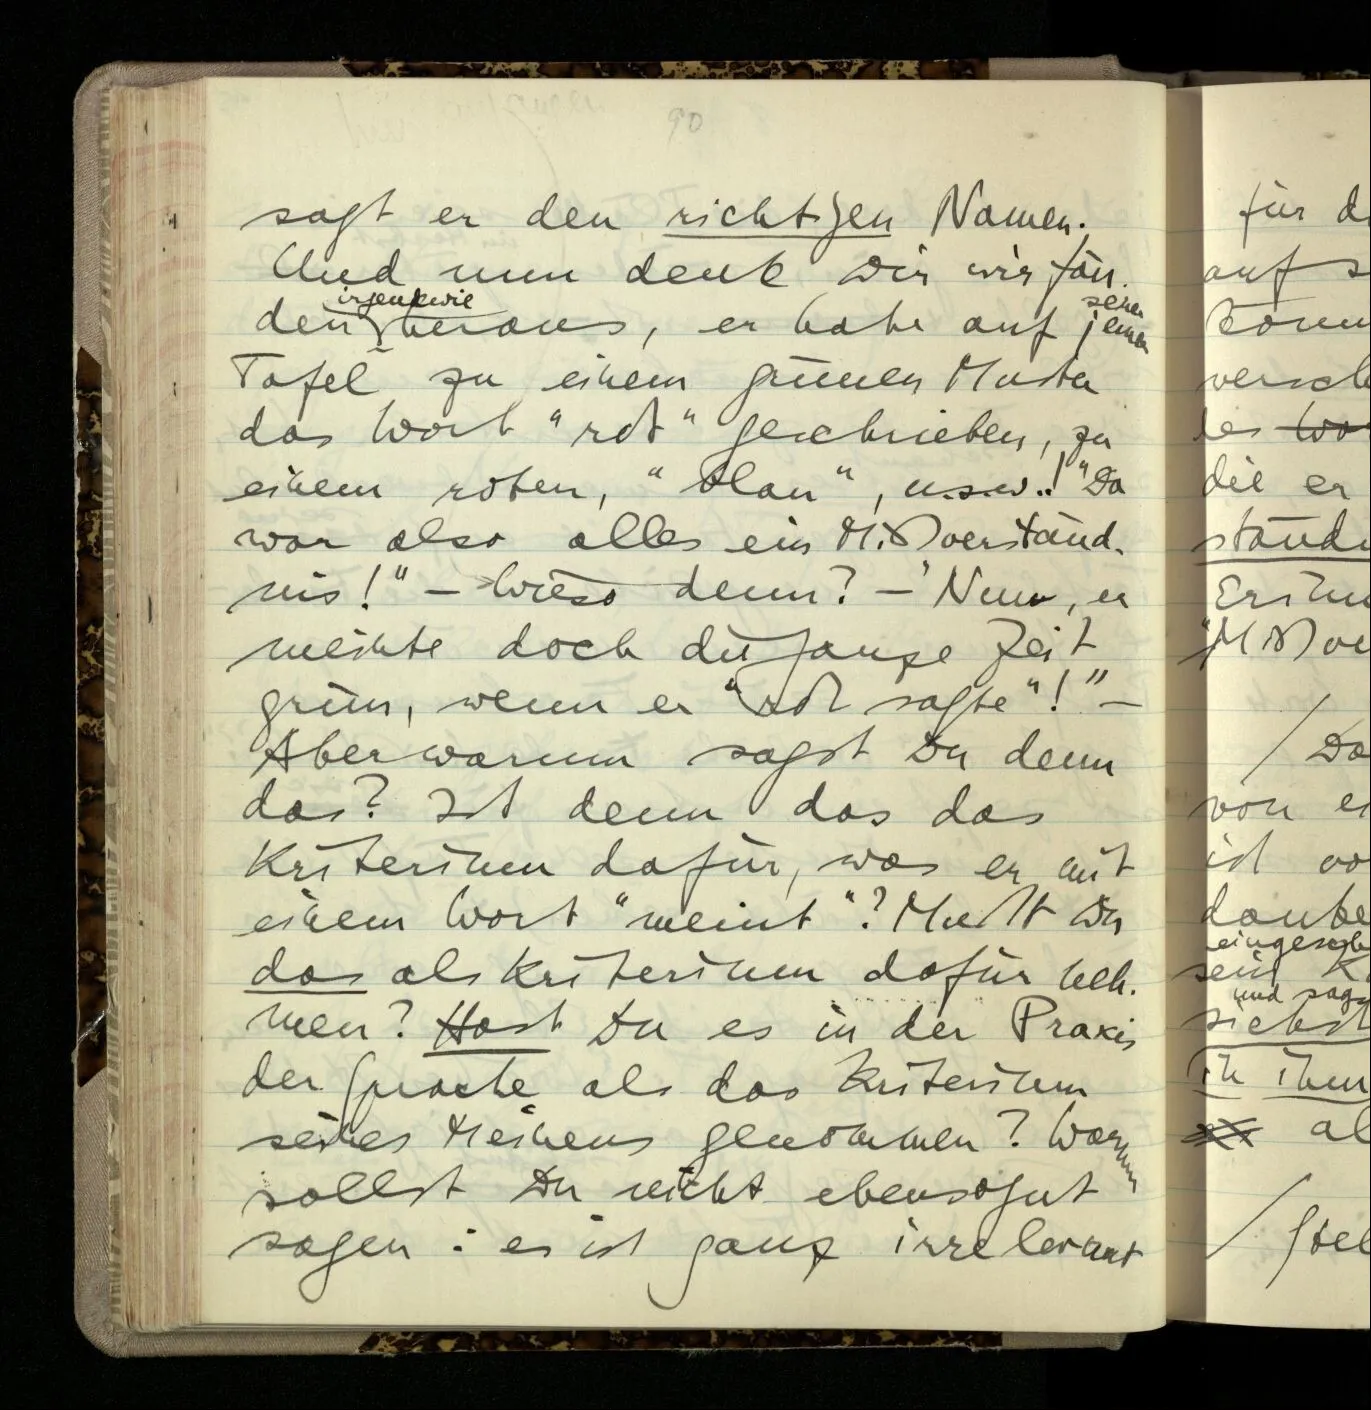 90
sagt er den richtigen Namen.
Und nun denk Dir wir fän-
irgendwie seiner
den heraus, er habe auf jener
Tafel zu einem grünen Muster
das Wort "rot" geschrieben, zu
einem roten, "blau", u.s.w..! "Da
war also alles ein Mißverständ-
nis!" – Wieso denn? – 'Nun, er
meinte doch die ganze Zeit
grün, wenn er "rot sagte"!" –
Aber warum sagst Du denn
das? Ist denn das das
Kriterium dafür, was er mit
einem Wort "meint"? Mußt Du
das als Kriterium dafür neh-
men? Hast Du es in der Praxis
der Sprache als das Kriterium
seines Meinens genommen? Warum
sollst Du nicht ebensogut
sagen: es ist ganz irrelevant
für d
auf s
versch
des Wo
die er
ständ
Erinn
"Mißve
/ Da
von ei
ist vo
und sag
siehst
in ihm
al
/